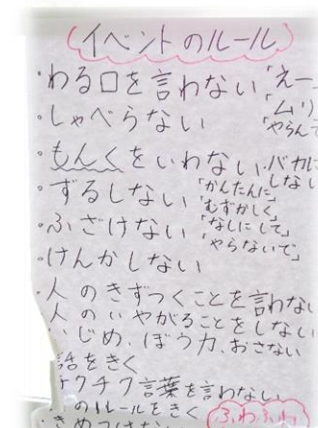 イベントのルール
・わる口を言わない 「えー
・しゃべらない 「ムリ
「やらんて
・もんくをいわない ・バカに
しない
・ずるしない 「かんたんに」
「むずかしく」
・ふざけない 「なしにして」
「やらないで」
・けんかしない
・人のきずつくことを言わない
・人のいやがることをしない
いじめ、ぼう力、おさない
話をきく
チクチク言葉を言わない
のルールをきく ふわふわ
きめつけない